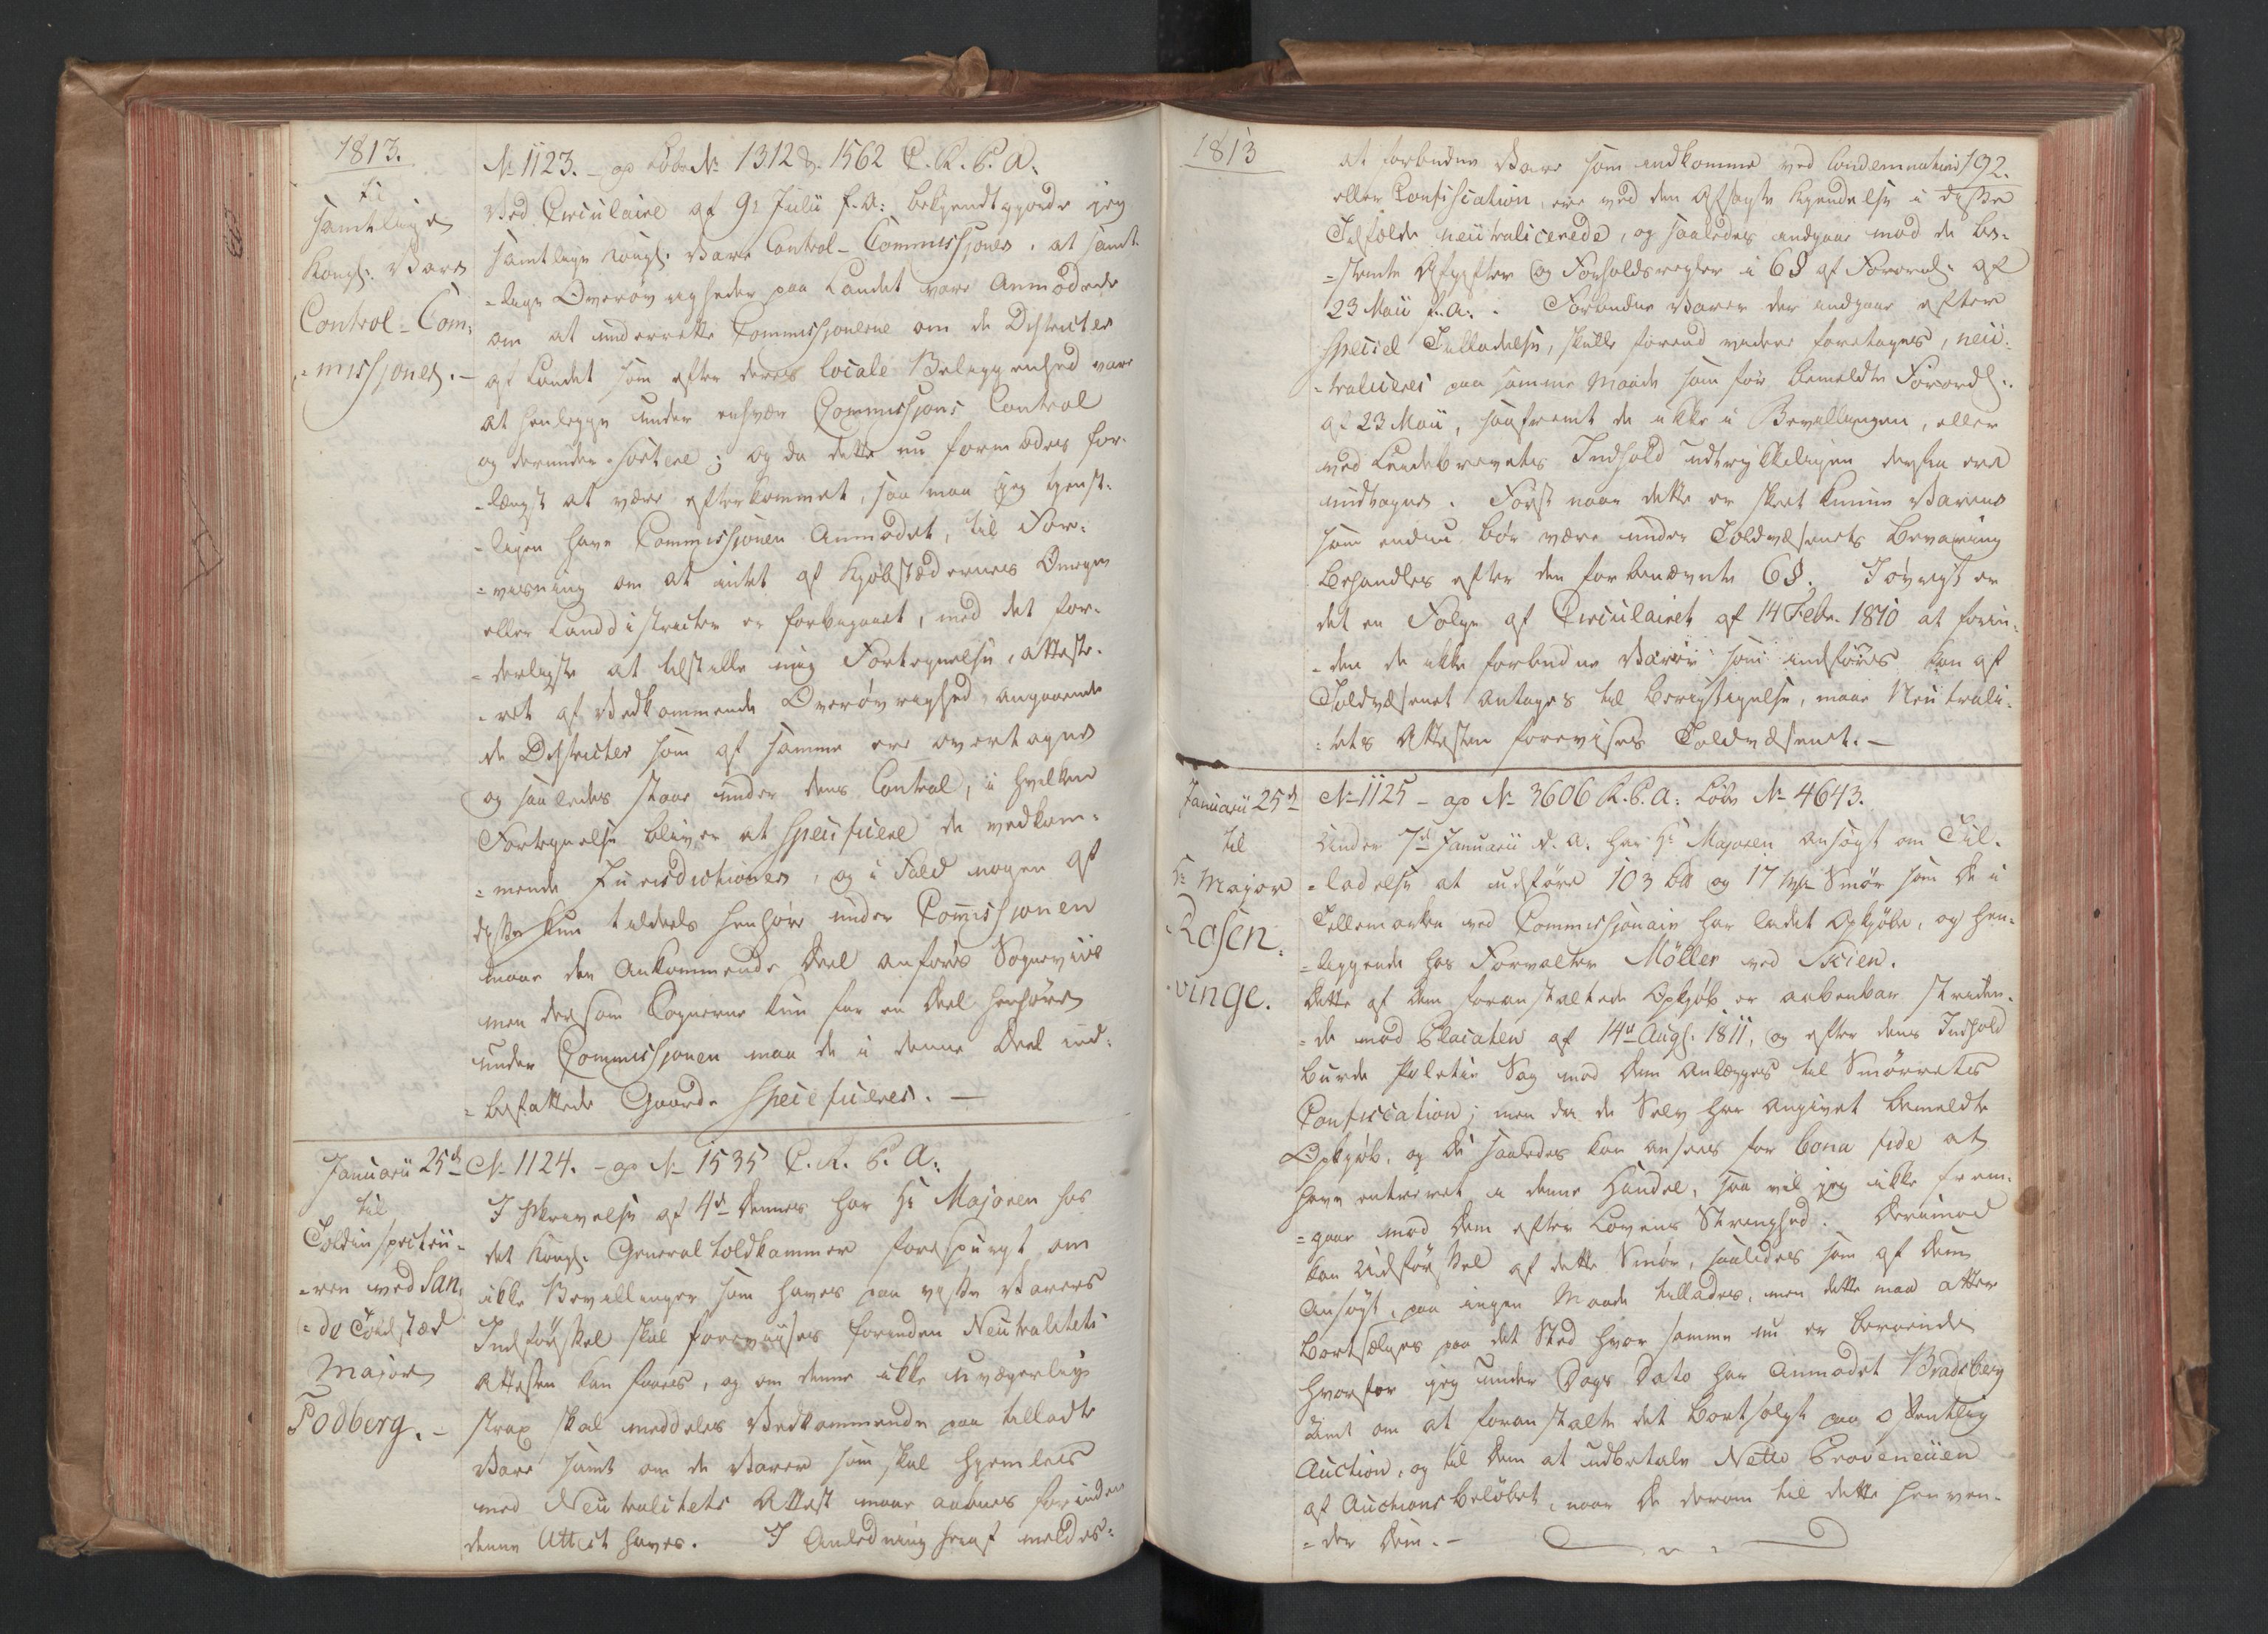 1813.
Til
samtlige
Kongl: Vare
Control-Com,
-missjoner.-
No 1123. - ap Lbb No 1312 & 1562 C. R. P. A.
Ved Circulaire af 9de Julii f. A: bekjendtgjorde jeg
samtlige Kongl. Vare Control-Commissjoner, at samt-
-lige Overøvrigheder paa Landet vare anmodede
om at underrette Commissjonerne om de Districter
af Landet som efter deres locale Beliggenhed vare
at henlegge under enhver Commissjons Control
og derunder sortere; og da dette nu formodes for-
-længst at være efterkommet, saa maa jeg tjenst-
-ligen have Commissjonen anmodet, til For-
-visning om at intet af Kjøbstædernes Omegn
eller Landdistricter er forbigaaet, med det for-
-derligste at tilstille mig Fortegnelse, atteste-
-ret af Vedkommende Overøvrighed, angaaende
de Districter som af samme ere overtagne
og saaledes staae under dens Control, i hvilken
Fortegnelse bliver at specificere de vedkom-
-mende Jurisdictioner, og i Fald nogen af
disse kun tildeels henhøre under Commissjonen
maae den ankommende Deel anføres Sogneviis
men dersom Sognerne kun for en Deel henhøre
under Commissjonen maa de i denne Deel ind-
-befattede Gaarde specificeres. -
Januarii 25de
til
Toldinspecteu-
-ren ved San,
-de Toldsted
Major
Todberg. -
No 1124. - ap No 1535 C. R. P. A.
I Skrivelse af 4de dennes har Hr Majoren hos
det Kongl. Generaltoldkammer forespurgt om
ikke Bevillinger som haves paa visse Varers
Indførsel skal foreviises forinden Neutralitets
Attesten kan faaes, og om denne ikke uvægerlig
strax skal meddeles Vedkommende paa tilladte
Vare samt om de Varer som skal hjemles
med Neutralitets Attest maae aabnes forinden
denne Attest haves. I Anledning heraf meldes:
1813
192.
at forbudne Vare som indkomme ved Condemnation
eller Confiscation, ere ved den afsagte Kjendelse i disse
Tilfælde neutraliserede, og saaledes indgaae mod de be-
-stemte Afgifter og Forholdsregler i 6 § af Forordn: af
23 Maii f. A. . Forbudne Varer der indgaae efter
speciel Tilladelse, skulle forend videre foretages, neu-
-traliseres paa samme Maade som før bemeldte Forordn:
af 23 Maii, saafremt de ikke i Bevillingen, eller
ved Leidebrevets Indhold udtrykkeligen derfra ere
undtagne. Først naar dette er skeet kunne Varerne
som endnu bør være under Toldvæsenets Bevaring
behandles efter den forbenævnte 6 §. Iøvrigt er
det en Følge af Circulairet af 14 Febr. 1810 at forin-
-den de ikke forbudne Varer som indføres kan af
Toldvæsenet antages til Berigtigelse, maae Neutrali-
-tets Attesten forevises Toldvæsenet. -
Januarii 25de
til
Hr Major
Rosen-
-vinge.
No 1125 - ap No 3606 R. P. A: Løb No 4643.
Under 7de Januarii d. A. har Hr Majoren ansøgt om Til-
-ladelse at udføre 103 bd og 17 Smør som De i
Tellemarken ved Commissjonair har ladet Opkjøbe, og hen-
-liggende hos Forvalter Möller ved Skien.
Dette af Dem foranstaltede Opkjøb er aabenbar striden-
-de mod Placaten af 14de Augs: 1811, og efter dens Indhold
burde Politie Sag mod Dem anlægges til Smørrets
Confiscation; men da De Selv har angivet bemeldte
Opkjøb, og De saaledes kan ansees for bona fide at
have entreret i denne Handel, saa vil jeg ikke frem-
-gaae mod Dem efter Lovens Strenghed. Derimod
kan Udførsel af dette Smør, saaledes som af Dem
ansøgt, paa ingen Maade tillades, men dette maa atter
bortsælges paa det Sted hvor samme nu er beroende
hvorfor jeg under Dags Dato har anmodet Bradsberg
Amt om at foranstalte det bortsolgt paa offentlig
Auction, og til Dem at udbetale Netto Provenuen
af Auctions Beløbet, naar De derom til dette henven-
-der Dem. -